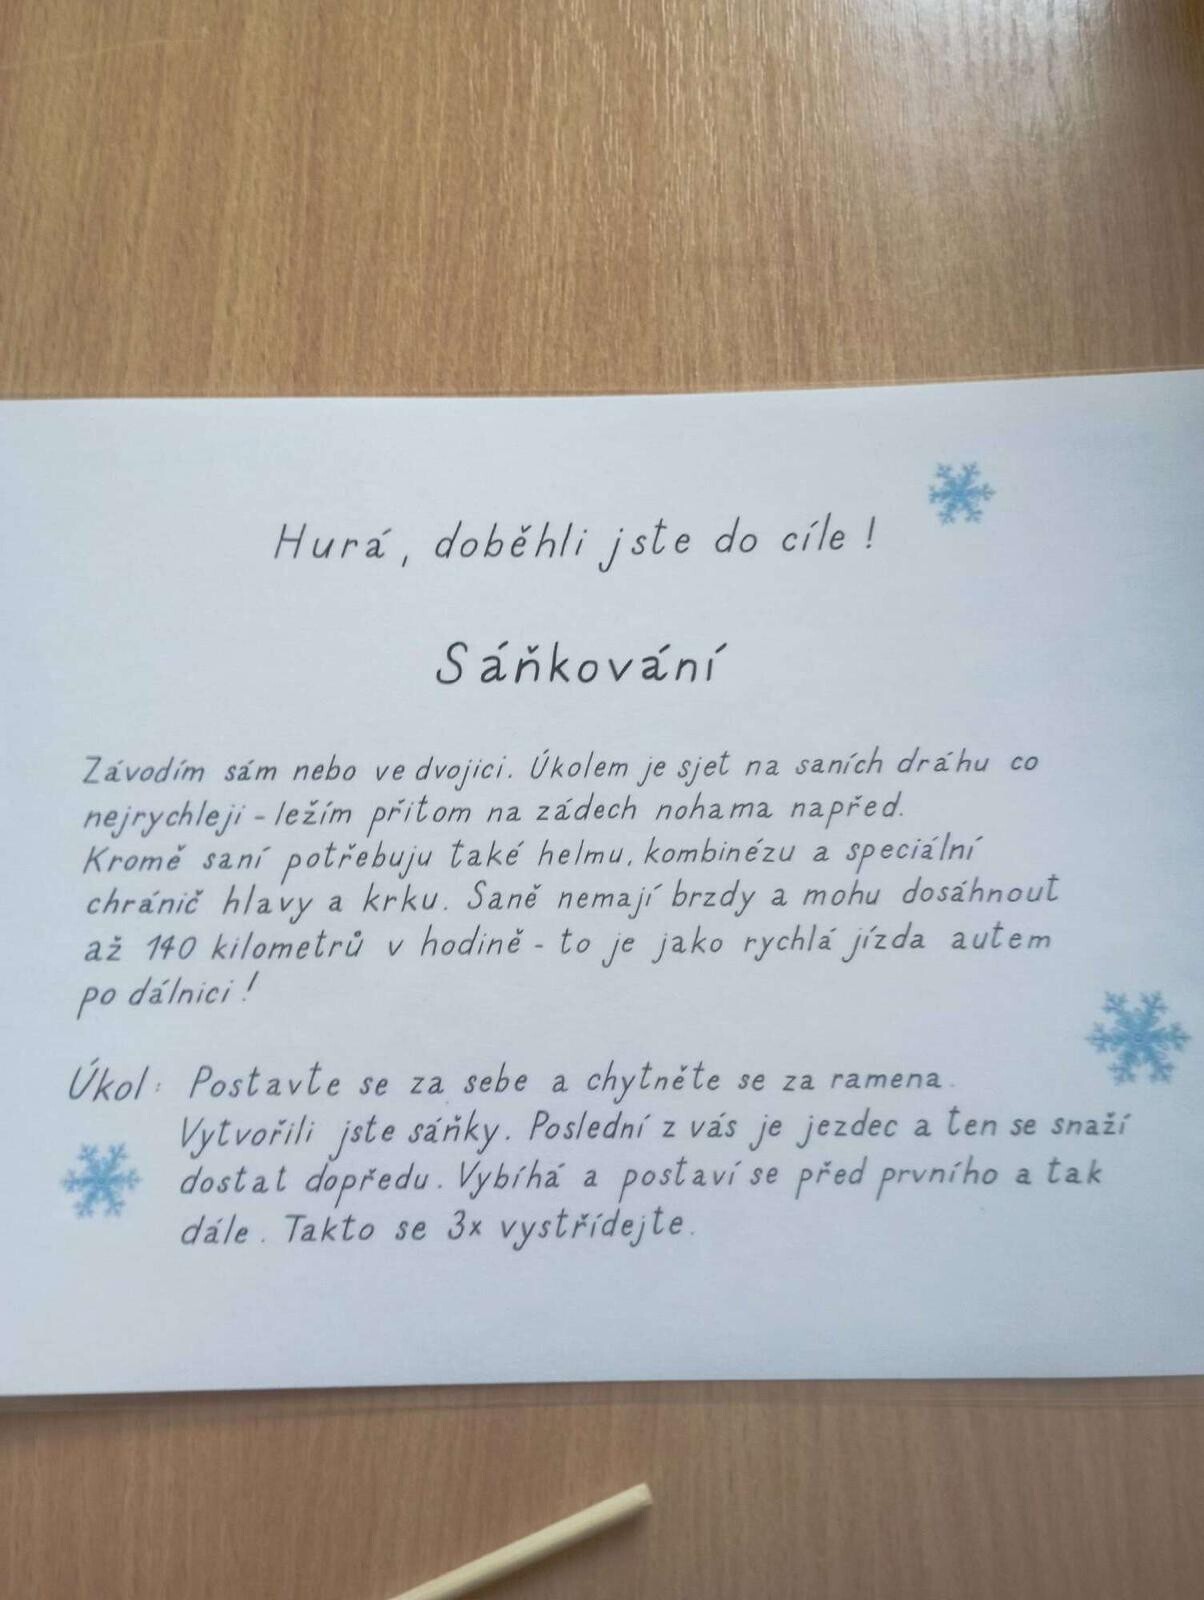 Hurá, doběhli jste do cíle!
Sáňkování
Závodím sám nebo ve dvojici. Úkolem je sjet na saních dráhu co
nejrychleji - ležím přitom na zádech nohama napřed.
Kromě saní potřebuju také helmu, kombinézu a speciální
chránič hlavy a krku. Saně nemají brzdy a mohu dosáhnout
až 140 kilometrů v hodině - to je jako rychlá jízda autem
po dálnici!
Úkol: Postavte se za sebe a chytněte se za ramena.
Vytvořili jste sáňky. Poslední z vás je jezdec a ten se snaží
dostat dopředu. Vybíhá a postaví se před prvního a tak
dále. Takto se 3x vystřídejte.